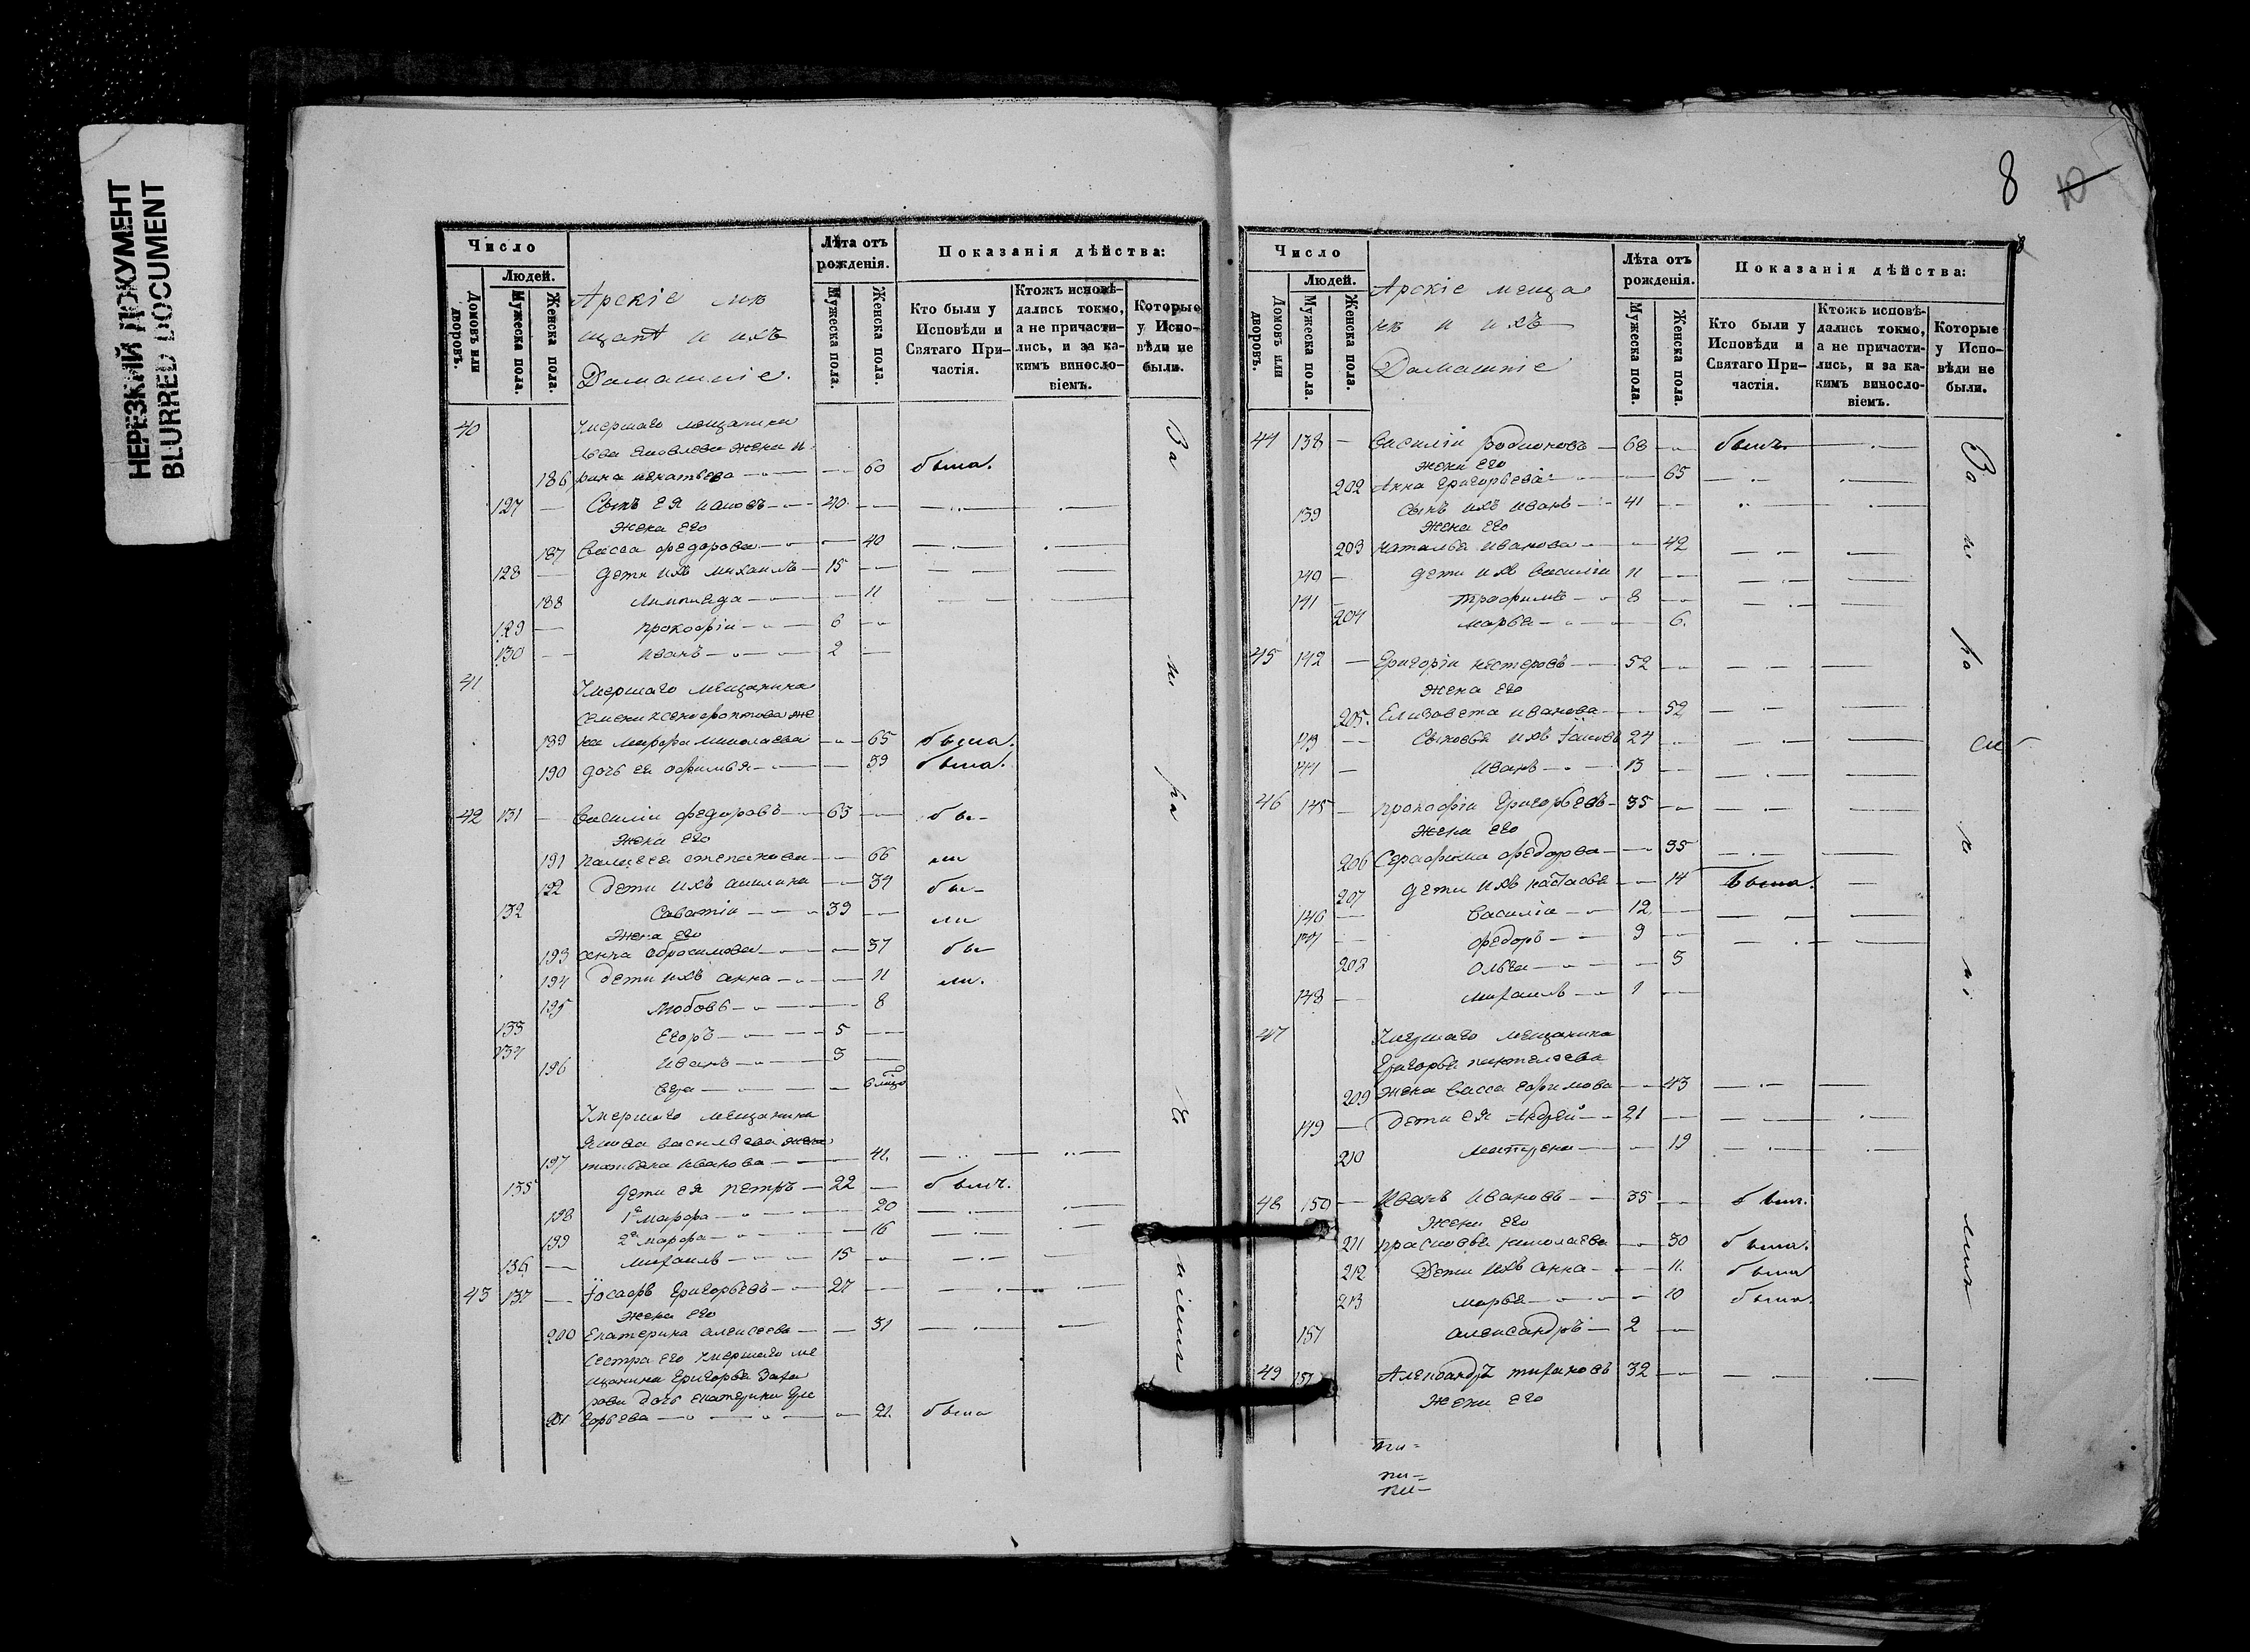 НЕРЕЗКИЙ ДОКУМЕНТ
BLURRED DOCUMENT
Число
Людей.
Домовъ или дворовъ.
Мужеска пола.
Женска пола.
Арскіе ме
щане и ихъ
Домашніе.
Лѣта отъ рожденія.
Мужеска пола.
Женска пола.
Показанія дѣйства:
Кто были у Исповѣди и Святаго Причастія.
Ктожъ исповѣдались токмо, а не причастились, и за какимъ винословіемъ.
Которые у Исповѣди не были.
40 Умершаго мещанина
Яковлева жена И
186 рина Игнатьева 60 была.
127 Сынъ ея Иаковъ 40
жена его
187 Васса Федорова 40
128 дети ихъ Михаилъ 15
188 11
129 Прокофіи 6
130 Иванъ 2
41 Умершаго мещанина
Семена Ксенофонтова же
189 на Марфа Николаева 65 была.
190 дочь ея Афимья 39 была.
42 131 Василіи Федоровъ 65 бы-
жена его
191 Степанова 66 ли
192 Дети ихъ Акилина 34 бы-
132 Саватіи 39 ли
жена его
193 37 бы-
194 Дети ихъ Анна 11 ли.
195 Любовь 8
133 Егоръ 5
134 Иванъ 3
196 Вера
Умершаго мещанина
Якова Васильева жена
197 Татьяна Иванова 42
135 дети ея Петръ 22 былъ.
198 1я Марфа 20
199 2я Марфа 16
136 Михаилъ 15
43 137 Іосафъ Григорьевъ 27
жена его
200 Екатерина Алексеева 31
Сестра его Умершаго ме
щанина Григорья Заха
рова дочь Екатерина Гри
201 горьева 21. была
8
10
Число
Людей.
Домовъ или дворовъ.
Мужеска пола.
Женска пола.
Арскіе меща
не и ихъ
Домашніе
Лѣта отъ рожденія.
Мужеска пола.
Женска пола.
Показанія дѣйства:
Кто были у Исповѣди и Святаго Причастія.
Ктожъ исповѣдались токмо, а не причастились, и за какимъ винословіемъ.
Которые у Исповѣди не были.
44 138 Василіи Родионовъ 68 былъ.
жена его
202 Анна Григорьева 65
139 Сынъ ихъ Иванъ 41
жена его
203 Наталья Иванова 42
140 дети ихъ Василіи 11
141 Трофимъ 8
204 Марья 6.
45 142 Григоріи Нестеровъ 52
жена его
205. Елизовета Иванова 52
143 Сыновья ихъ Іаковъ 24
144 Иванъ 13
46 145 Прокофіи Григорьевъ 35
жена его
206 Серафима Федорова 35
207 дети ихъ Настасья 14 была.
146 Василіи 12
147 Федоръ 9
208 Ольга 5
148 Михаилъ 1
47 Умершаго мещанина
Григорья Пантелеева
209 жена Васса Ефимова 43
149 Дети ея Андрей 21
210 Матрена 19
48 150 Иванъ Ивановъ 35 былъ.
жена его
211 Прасковья Николаева 30 была.
212 Дети ихъ Анна 11. была
213 Марья 10 была.
151 Александръ 2
49 152 Александръ Тихановъ 32
жена его